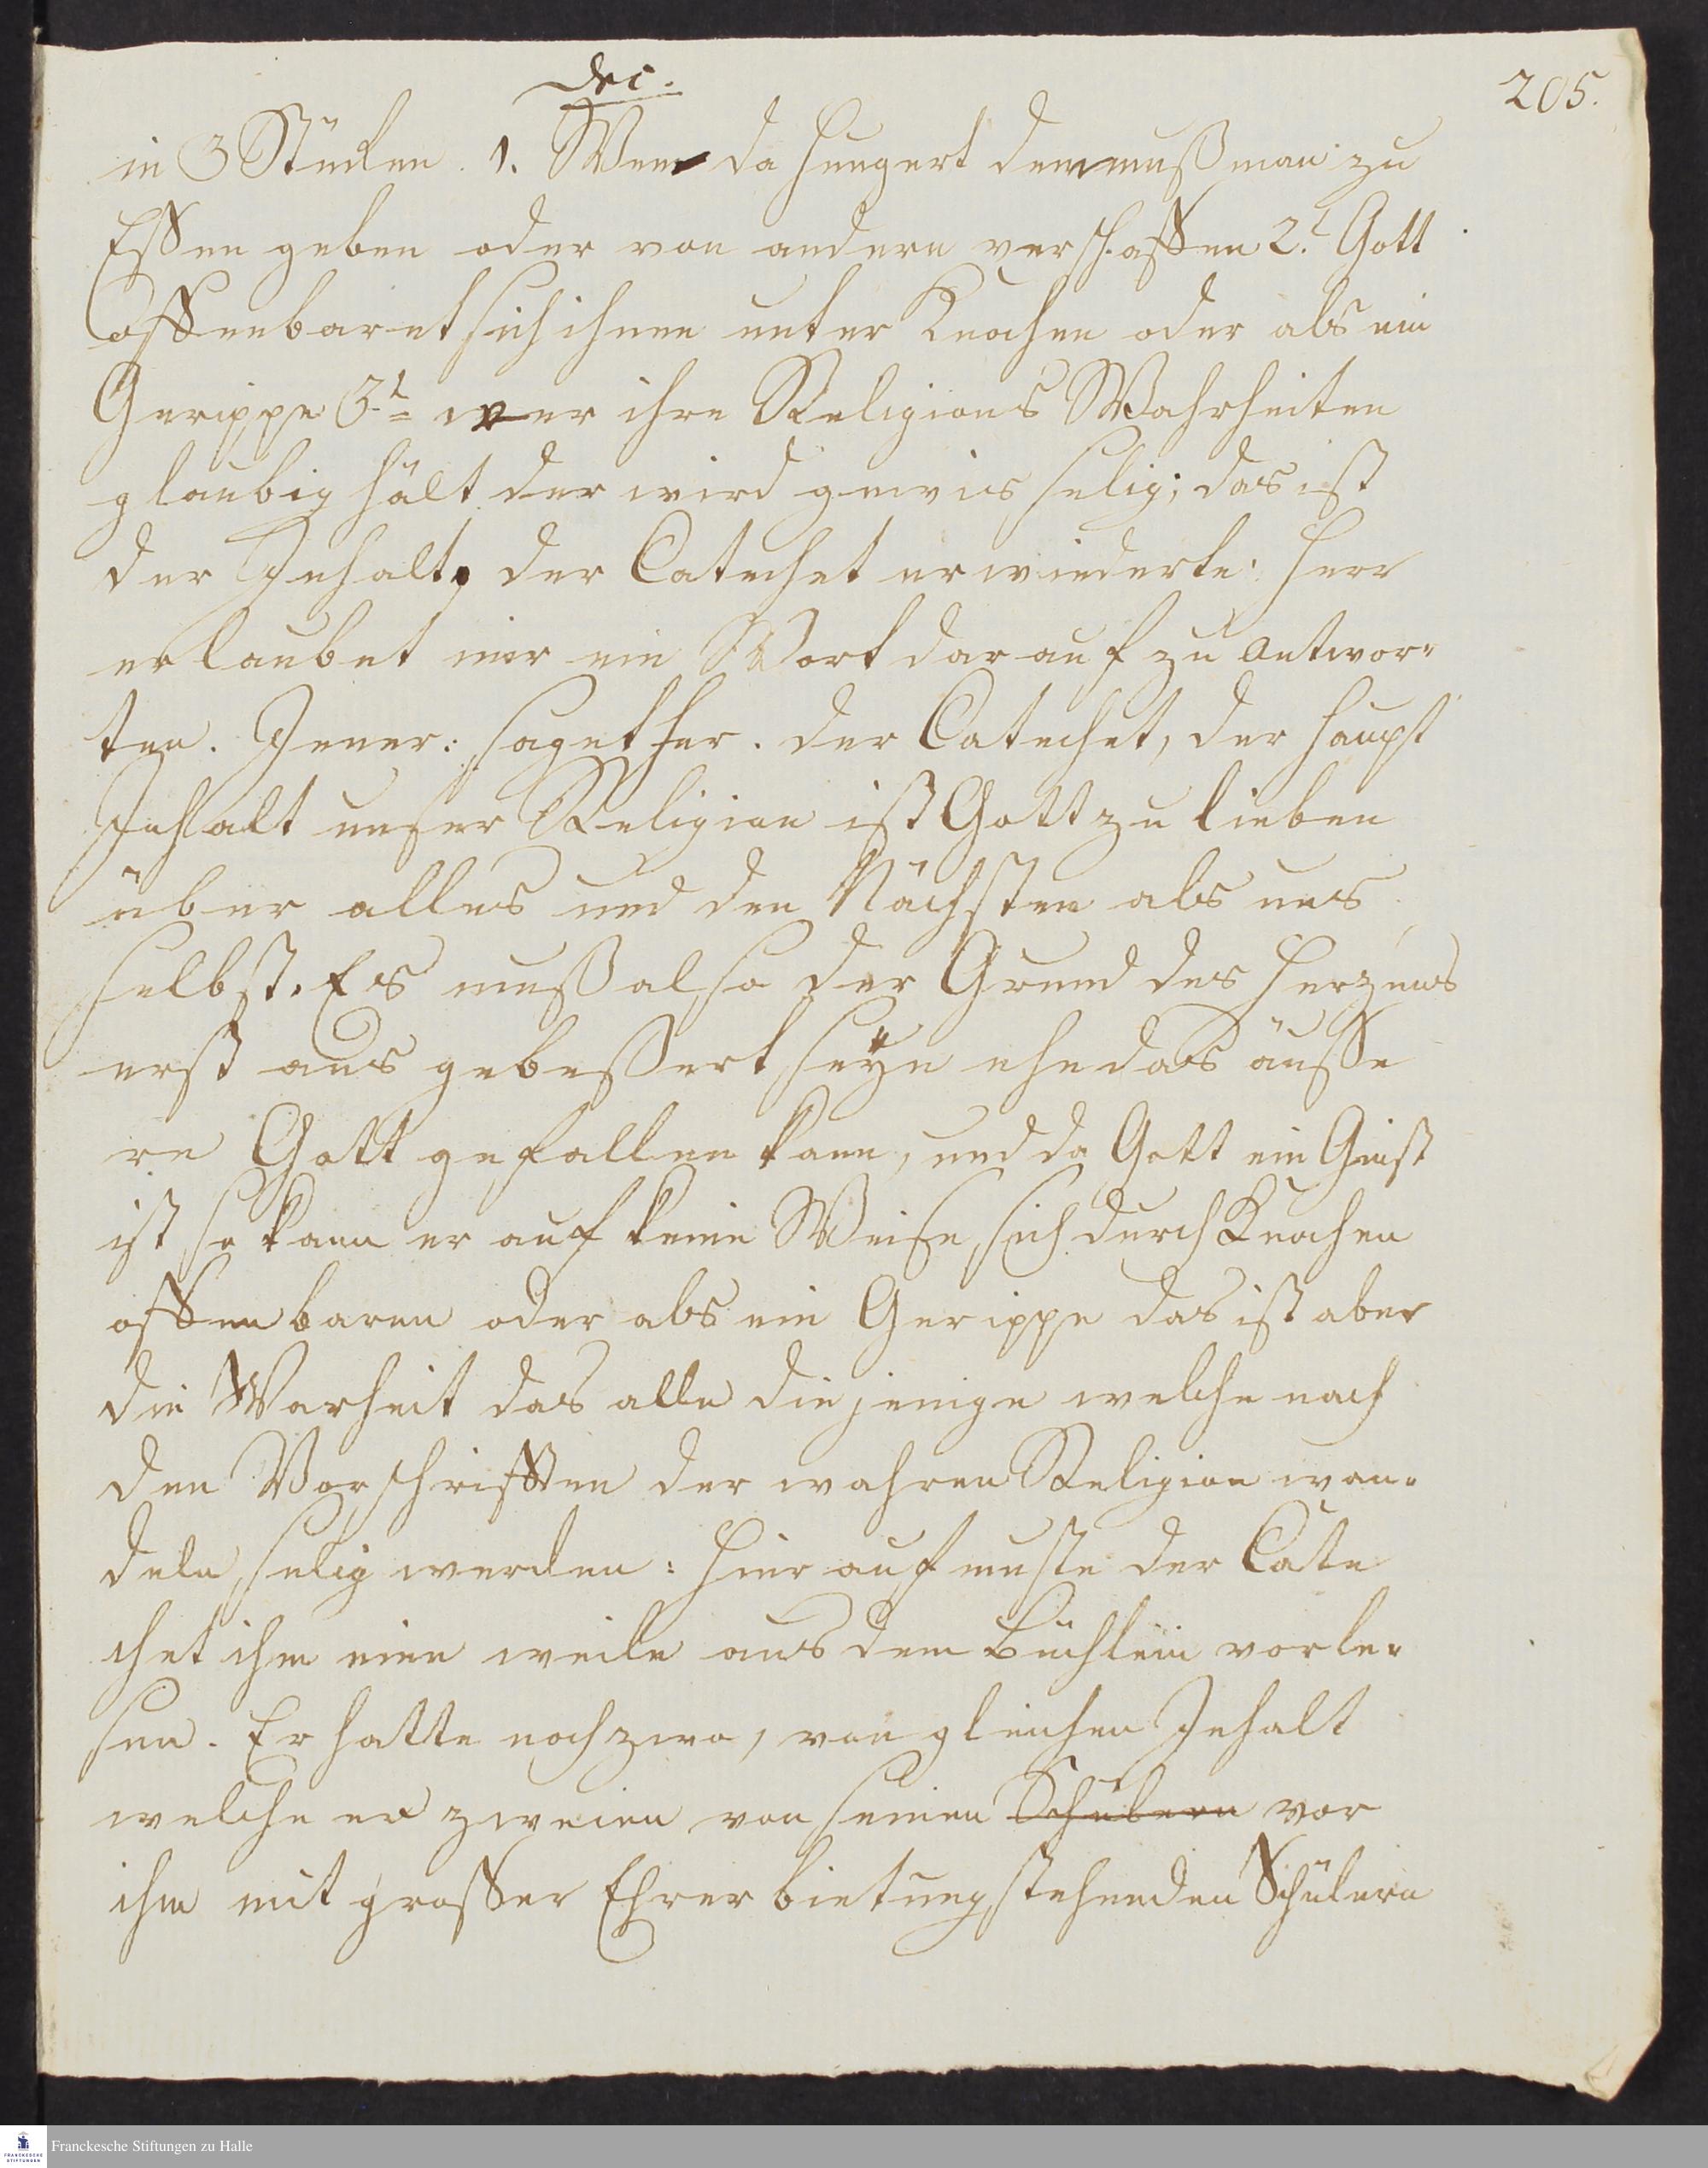 Dec.
205.
in 3 Stücken. 1. Wem da hungert dem muß man zu
Essen geben oder von andern verschaffen 2.t Gott
offenbaret sich ihnen unter Knochen oder als ein
Gerippe 3t wer ihre Religions Wahrheiten
glaubig hält der wird gewis selig; das ist
der Inhalt, der Catechet erwiederte: Herr
erlaubet mir ein Wort darauf zu antwor-
ten. Jener: saget her. der Catechet, der haupt
Inhalt unser Religion ist Gott zu lieben
über alles und den Nächsten als uns
selbst. Es muß also der Grund des Herzens
erst aus gebessert seÿn ehe das äusse
re Gott gefallen kann, und da Gott ein Geist
ist so kann er auf keine Weise, sich durch Knochen
offenbaren oder als ein Gerippe das ist aber
die Warheit das alle diejenige welche nach
den Vorschrifften der wahren Religion wan-
deln, selig werden: Hierauf muste der Cate
chet ihm eine weile aus dem Büchlein vorle-
sen. Er hatte noch zwo, von gleichen Inhalt
welche er zweien von seinen Schülern vor
ihm mit grosser Ehrerbietung stehenden Schülern
Franckesche Stiftungen zu Halle